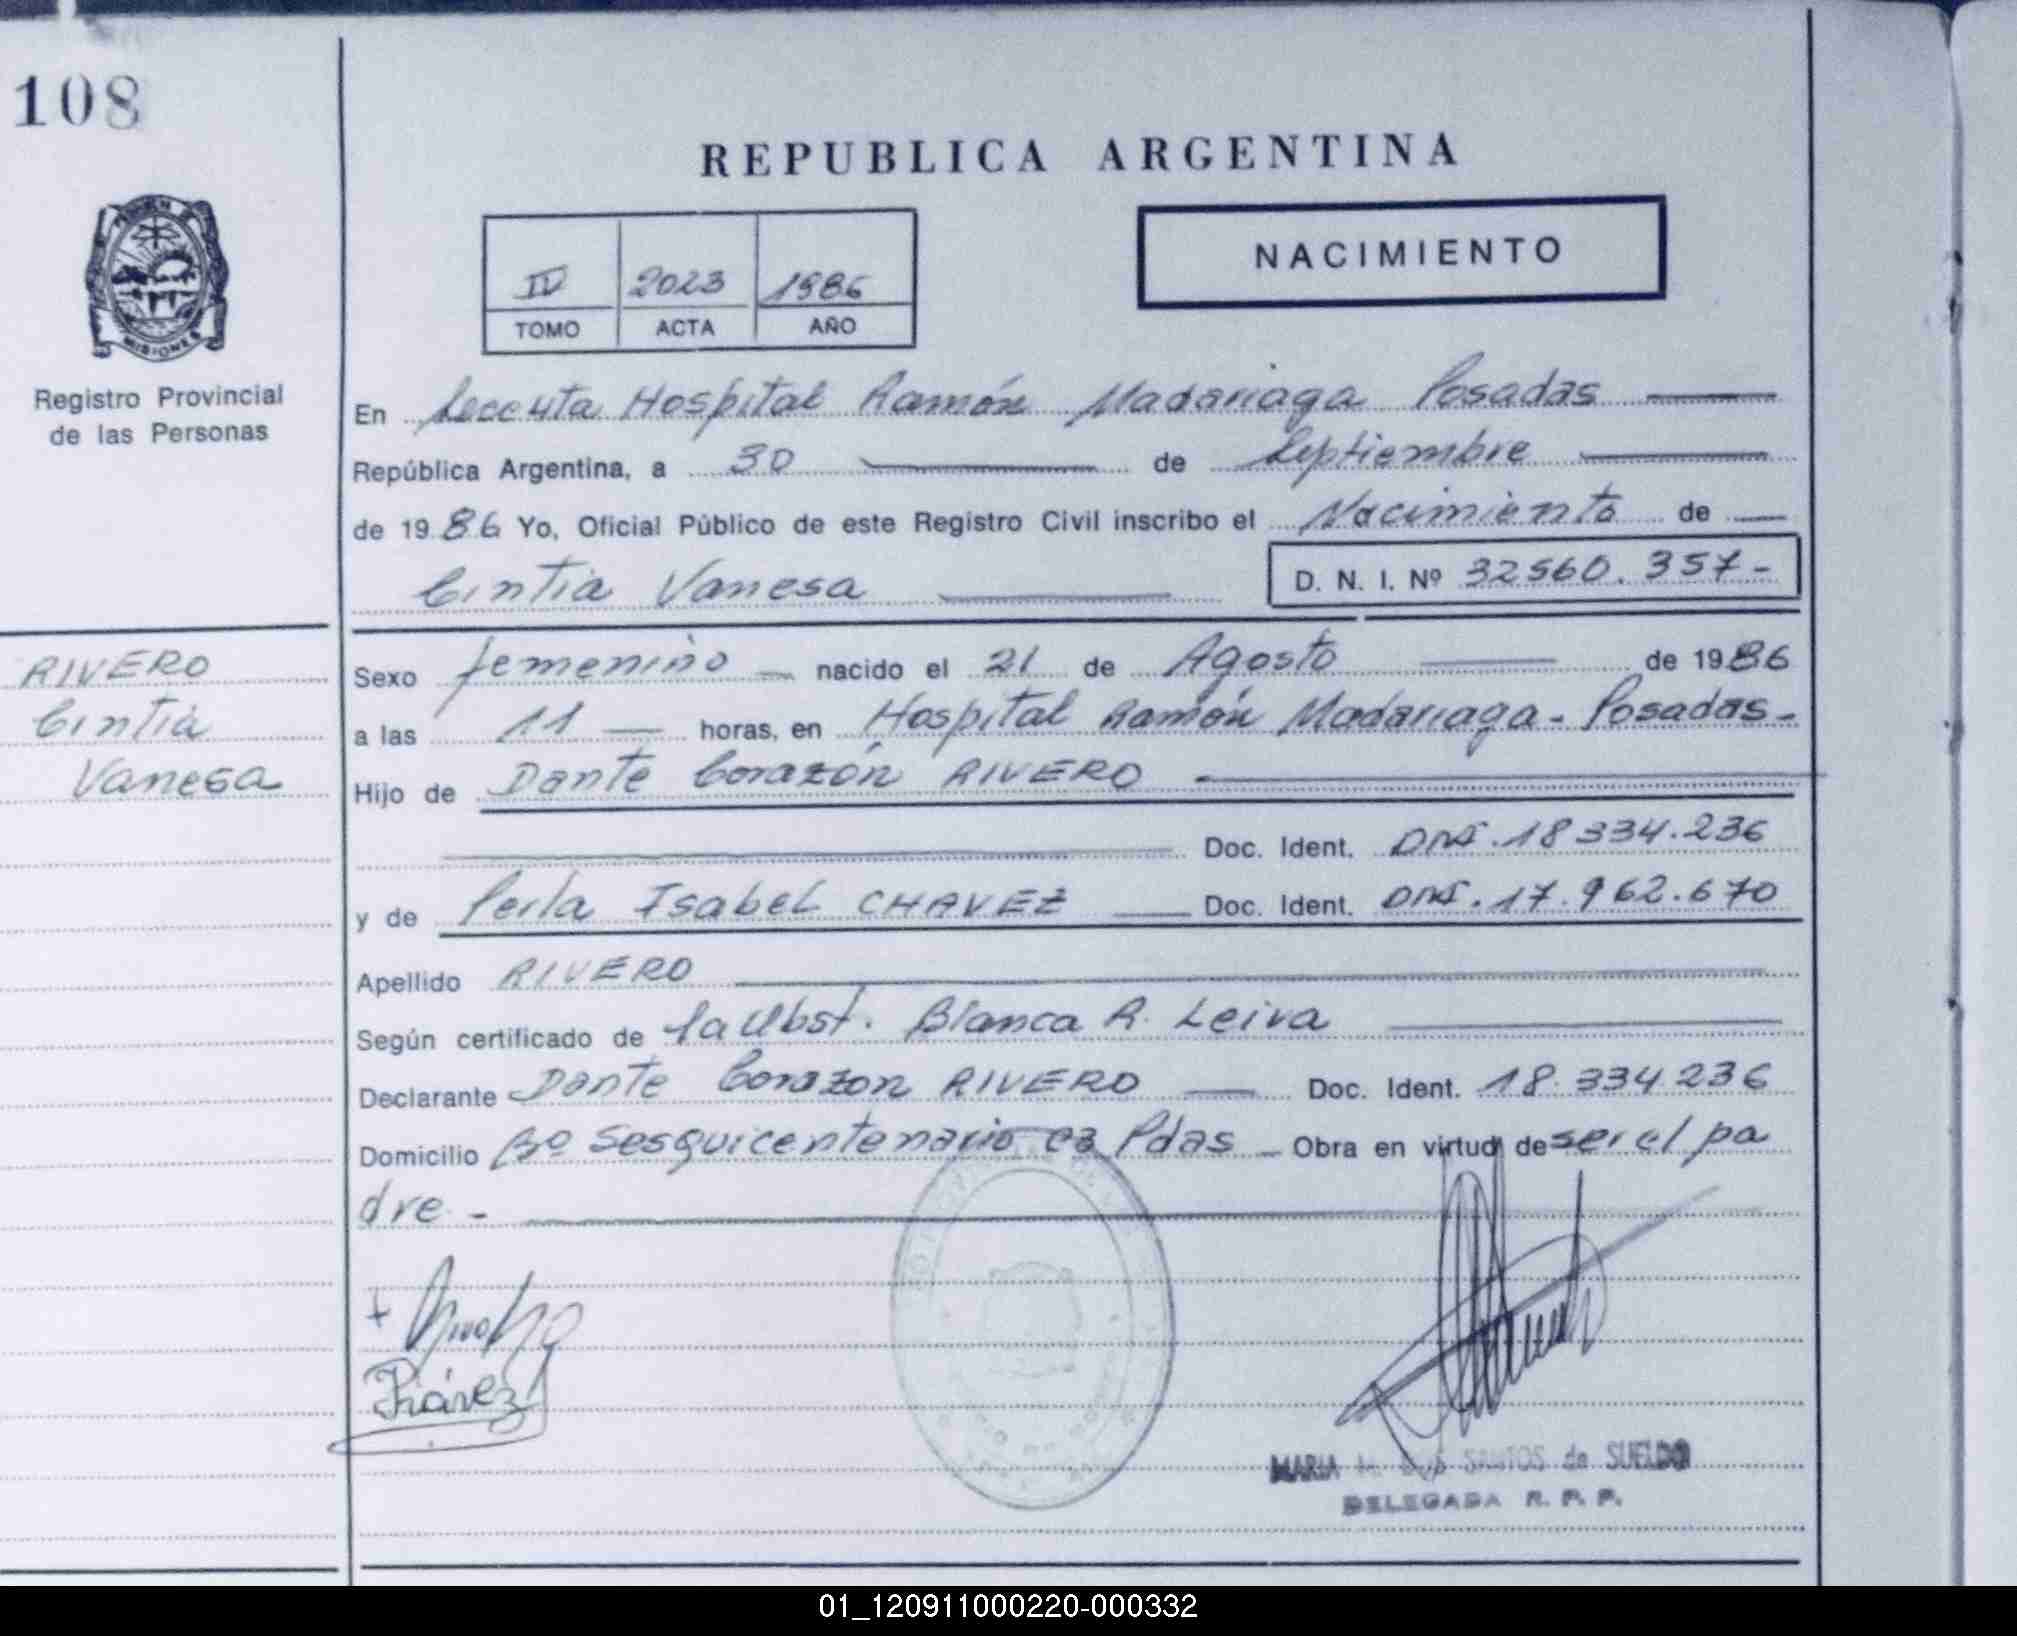 108
REPUBLICA ARGENTINA
NACIMIENTO
IV 2023 1986
TOMO ACTA AÑO
MISIONES
Registro Provincial
de las Personas
En Hospital Ramón Madariaga Posadas
República Argentina, a 30 de Septiembre
de 1986 Yo, Oficial Público de este Registro Civil inscribo el Nacimiento de
Cintia Vanesa D. N. I. Nº 32560.357-
RIVERO
Cintia
Vanesa
Sexo femenino nacido el 21 de Agosto de 1986
a las 11 horas, en Hospital Ramón Madariaga - Posadas-
Hijo de Dante Corazón RIVERO
Doc. Ident. DNI.18334.236
y de Perla Isabel CHAVEZ Doc. Ident. DNI.17.962.670
Apellido RIVERO
Según certificado de la Obst. Blanca R. Leiva
Declarante Dante Corazon RIVERO Doc. Ident. 18.334.236
Domicilio Bº Sesquicentenario Pdas - Obra en virtud de ser el pa
dre -
MARIA SANTOS de SUELDO
DELEGADA R. P. P.
01_120911000220-000332